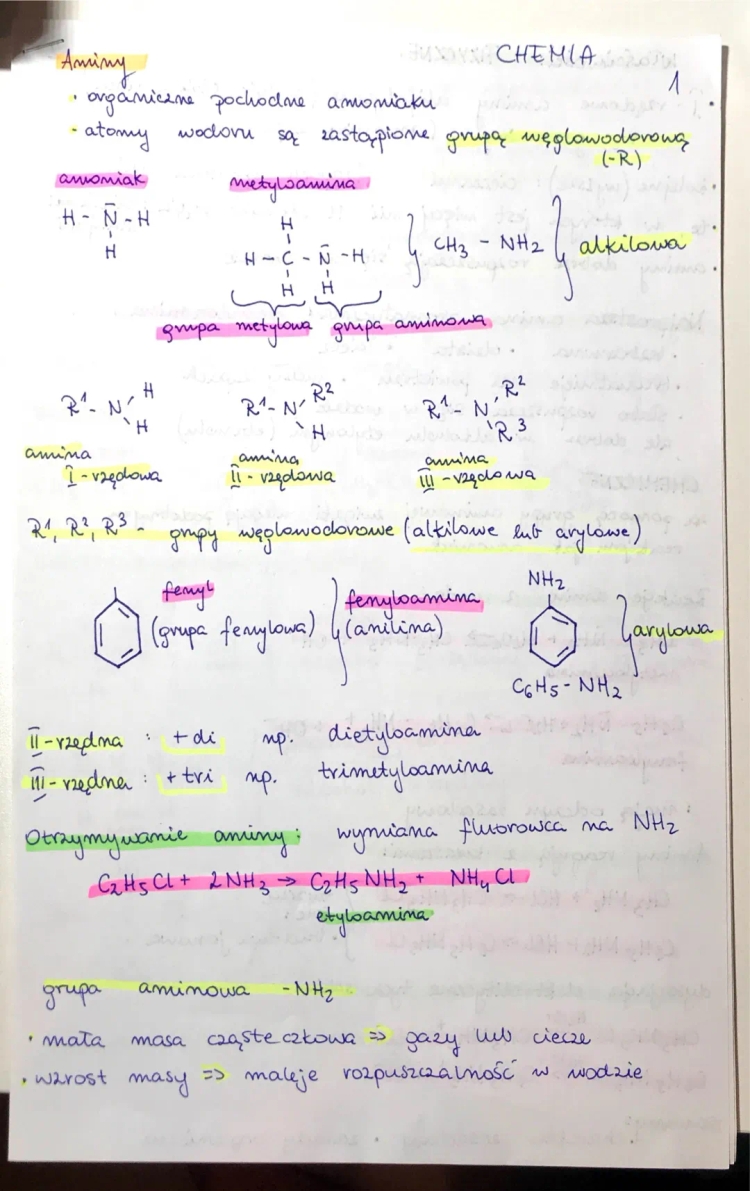 CHEMIA
1
Aminy
• organiczne pochodne amoniaku
- atomy wodoru są zastąpione grupą węglowodorową
(-R)
amoniak metyloamina
H - N - H
H
H
H - C - N - H
H H
CH3 - NH2
alkilowa
grupa metylowa grupa aminowa
R1 - N H H
R1 - N R2 H
R1 - N R2 R3
amina amina amina
I - rzędowa II - rzędowa III - rzędowa
R1, R2, R3 grupy węglowodorowe (alkilowe lub arylowe)
fenyl
(grupa fenylowa)
fenyloamina
(anilina)
NH2
arylowa
C6H5 - NH2
II - rzędna : + di np. dietyloamina
III - rzędne : + tri np. trimetyloamina
Otrzymywanie aminy: wymiana fluorowca na NH2
C2H5Cl + 2NH3 → C2H5NH2 + NH4Cl
etyloamina
grupa aminowa -NH2
• mała masa cząsteczkowa => gazy lub ciecze
• wzrost masy => maleje rozpuszczalność w wodzie